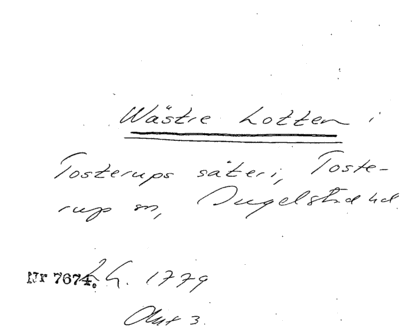 Wästre Lotten i
Tosterups säteri, Toste-
rup sn, Ingelstad hd.
Nr 7674. LG. 1779
Akt 3.